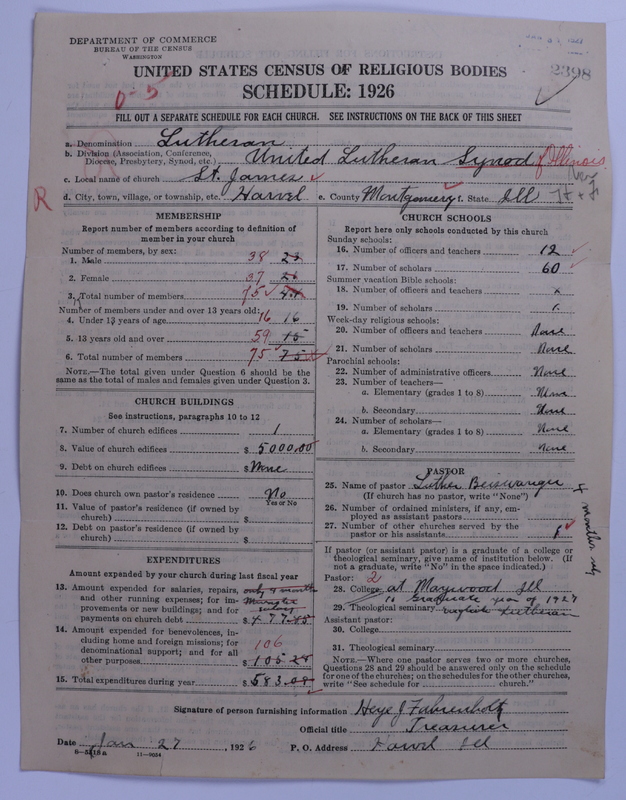 DEPARTMENT OF COMMERCE
BUREAU OF THE CENSUS
WASHINGTON
2398
UNITED STATES CENSUS OF RELIGIOUS BODIES
SCHEDULE: 1926
0-5
FILL OUT A SEPARATE SCHEDULE FOR EACH CHURCH. SEE INSTRUCTIONS ON THE BACK OF THIS SHEET
a. Denomination Lutheran
b. Division (Association, Conference, Diocese, Presbytery, Synod, etc.) United Lutheran Synod of Illinois
c. Local name of church St. James
R
d. City, town, village, or township, etc. Harvel e. County Montgomery f. State Ill
MEMBERSHIP
Report number of members according to definition of member in your church
Number of members, by sex:
1. Male 38
2. Female 37
3. Total number of members 75
Number of members under and over 13 years old:
4. Under 13 years of age 16 16
5. 13 years old and over 59 15
6. Total number of members 75 75
NOTE.—The total given under Question 6 should be the same as the total of males and females given under Question 3.
CHURCH BUILDINGS
See instructions, paragraphs 10 to 12
7. Number of church edifices 1
8. Value of church edifices $ 5000.00
9. Debt on church edifices $ None
10. Does church own pastor's residence No
Yes or No
11. Value of pastor's residence (if owned by church) $
12. Debt on pastor's residence (if owned by church) $
EXPENDITURES
Amount expended by your church during last fiscal year
13. Amount expended for salaries, repairs, and other running expenses; for improvements or new buildings; and for payments on church debt $ 477.85
14. Amount expended for benevolences, including home and foreign missions; for denominational support; and for all other purposes 106 $ 105.28
15. Total expenditures during year $ 583.08
CHURCH SCHOOLS
Report here only schools conducted by this church
Sunday schools:
16. Number of officers and teachers 12
17. Number of scholars 60
Summer vacation Bible schools:
18. Number of officers and teachers x
19. Number of scholars
Week-day religious schools:
20. Number of officers and teachers None
21. Number of scholars None
Parochial schools:
22. Number of administrative officers None
23. Number of teachers—
a. Elementary (grades 1 to 8) None
b. Secondary None
24. Number of scholars—
a. Elementary (grades 1 to 8) None
b. Secondary None
PASTOR
25. Name of pastor Luther Beiswanger
(If church has no pastor, write "None")
26. Number of ordained ministers, if any, employed as assistant pastors
27. Number of other churches served by the pastor or his assistants
If pastor (or assistant pastor) is a graduate of a college or theological seminary, give name of institution below. (If not a graduate, write "No" in the space indicated.)
Pastor: 2
28. College at Maywood Ill
to Graduate year of 1927
29. Theological seminary English Lutheran
Assistant pastor:
30. College
31. Theological seminary
NOTE.—Where one pastor serves two or more churches, Questions 28 and 29 should be answered only on the schedule for one of the churches; on the schedules for the other churches, write "See schedule for church."
Signature of person furnishing information Heye J Fahrenholtz
Official title Treasurer
Date Jan 27, 1926 P. O. Address Harvel Ill
11—9034